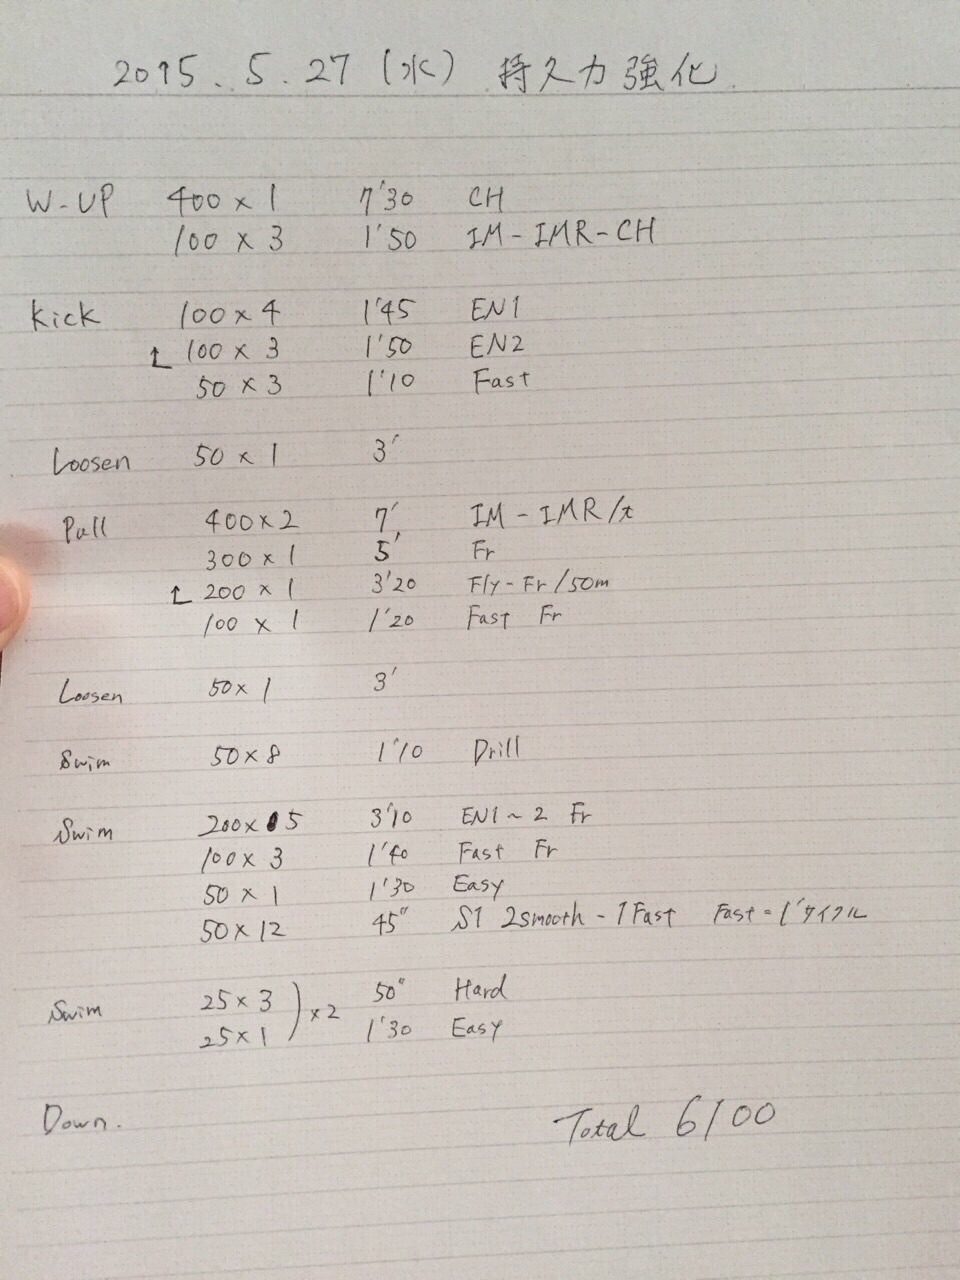 2015. 5. 27 (水) 持久力強化
W-UP 400 × 1 7'30 CH
100 × 3 1'50 IM - IMR - CH
Kick 100 × 4 1'45 EN1
100 × 3 1'50 EN2
50 × 3 1'10 Fast
Loosen 50 × 1 3'
Pull 400 × 2 7' IM - IMR/t
300 × 1 5' Fr
200 × 1 3'20 Fly - Fr /50m
100 × 1 1'20 Fast Fr
Loosen 50 × 1 3'
Swim 50 × 8 1'10 Drill
Swim 200 × 5 3'10 EN1~2 Fr
100 × 3 1'40 Fast Fr
50 × 1 1'30 Easy
50 × 12 45" S1 2smooth - 1Fast Fast = 1'サイクル
Swim 25 × 3 ) × 2 50" Hard
25 × 1 1'30 Easy
Down.
Total 6100